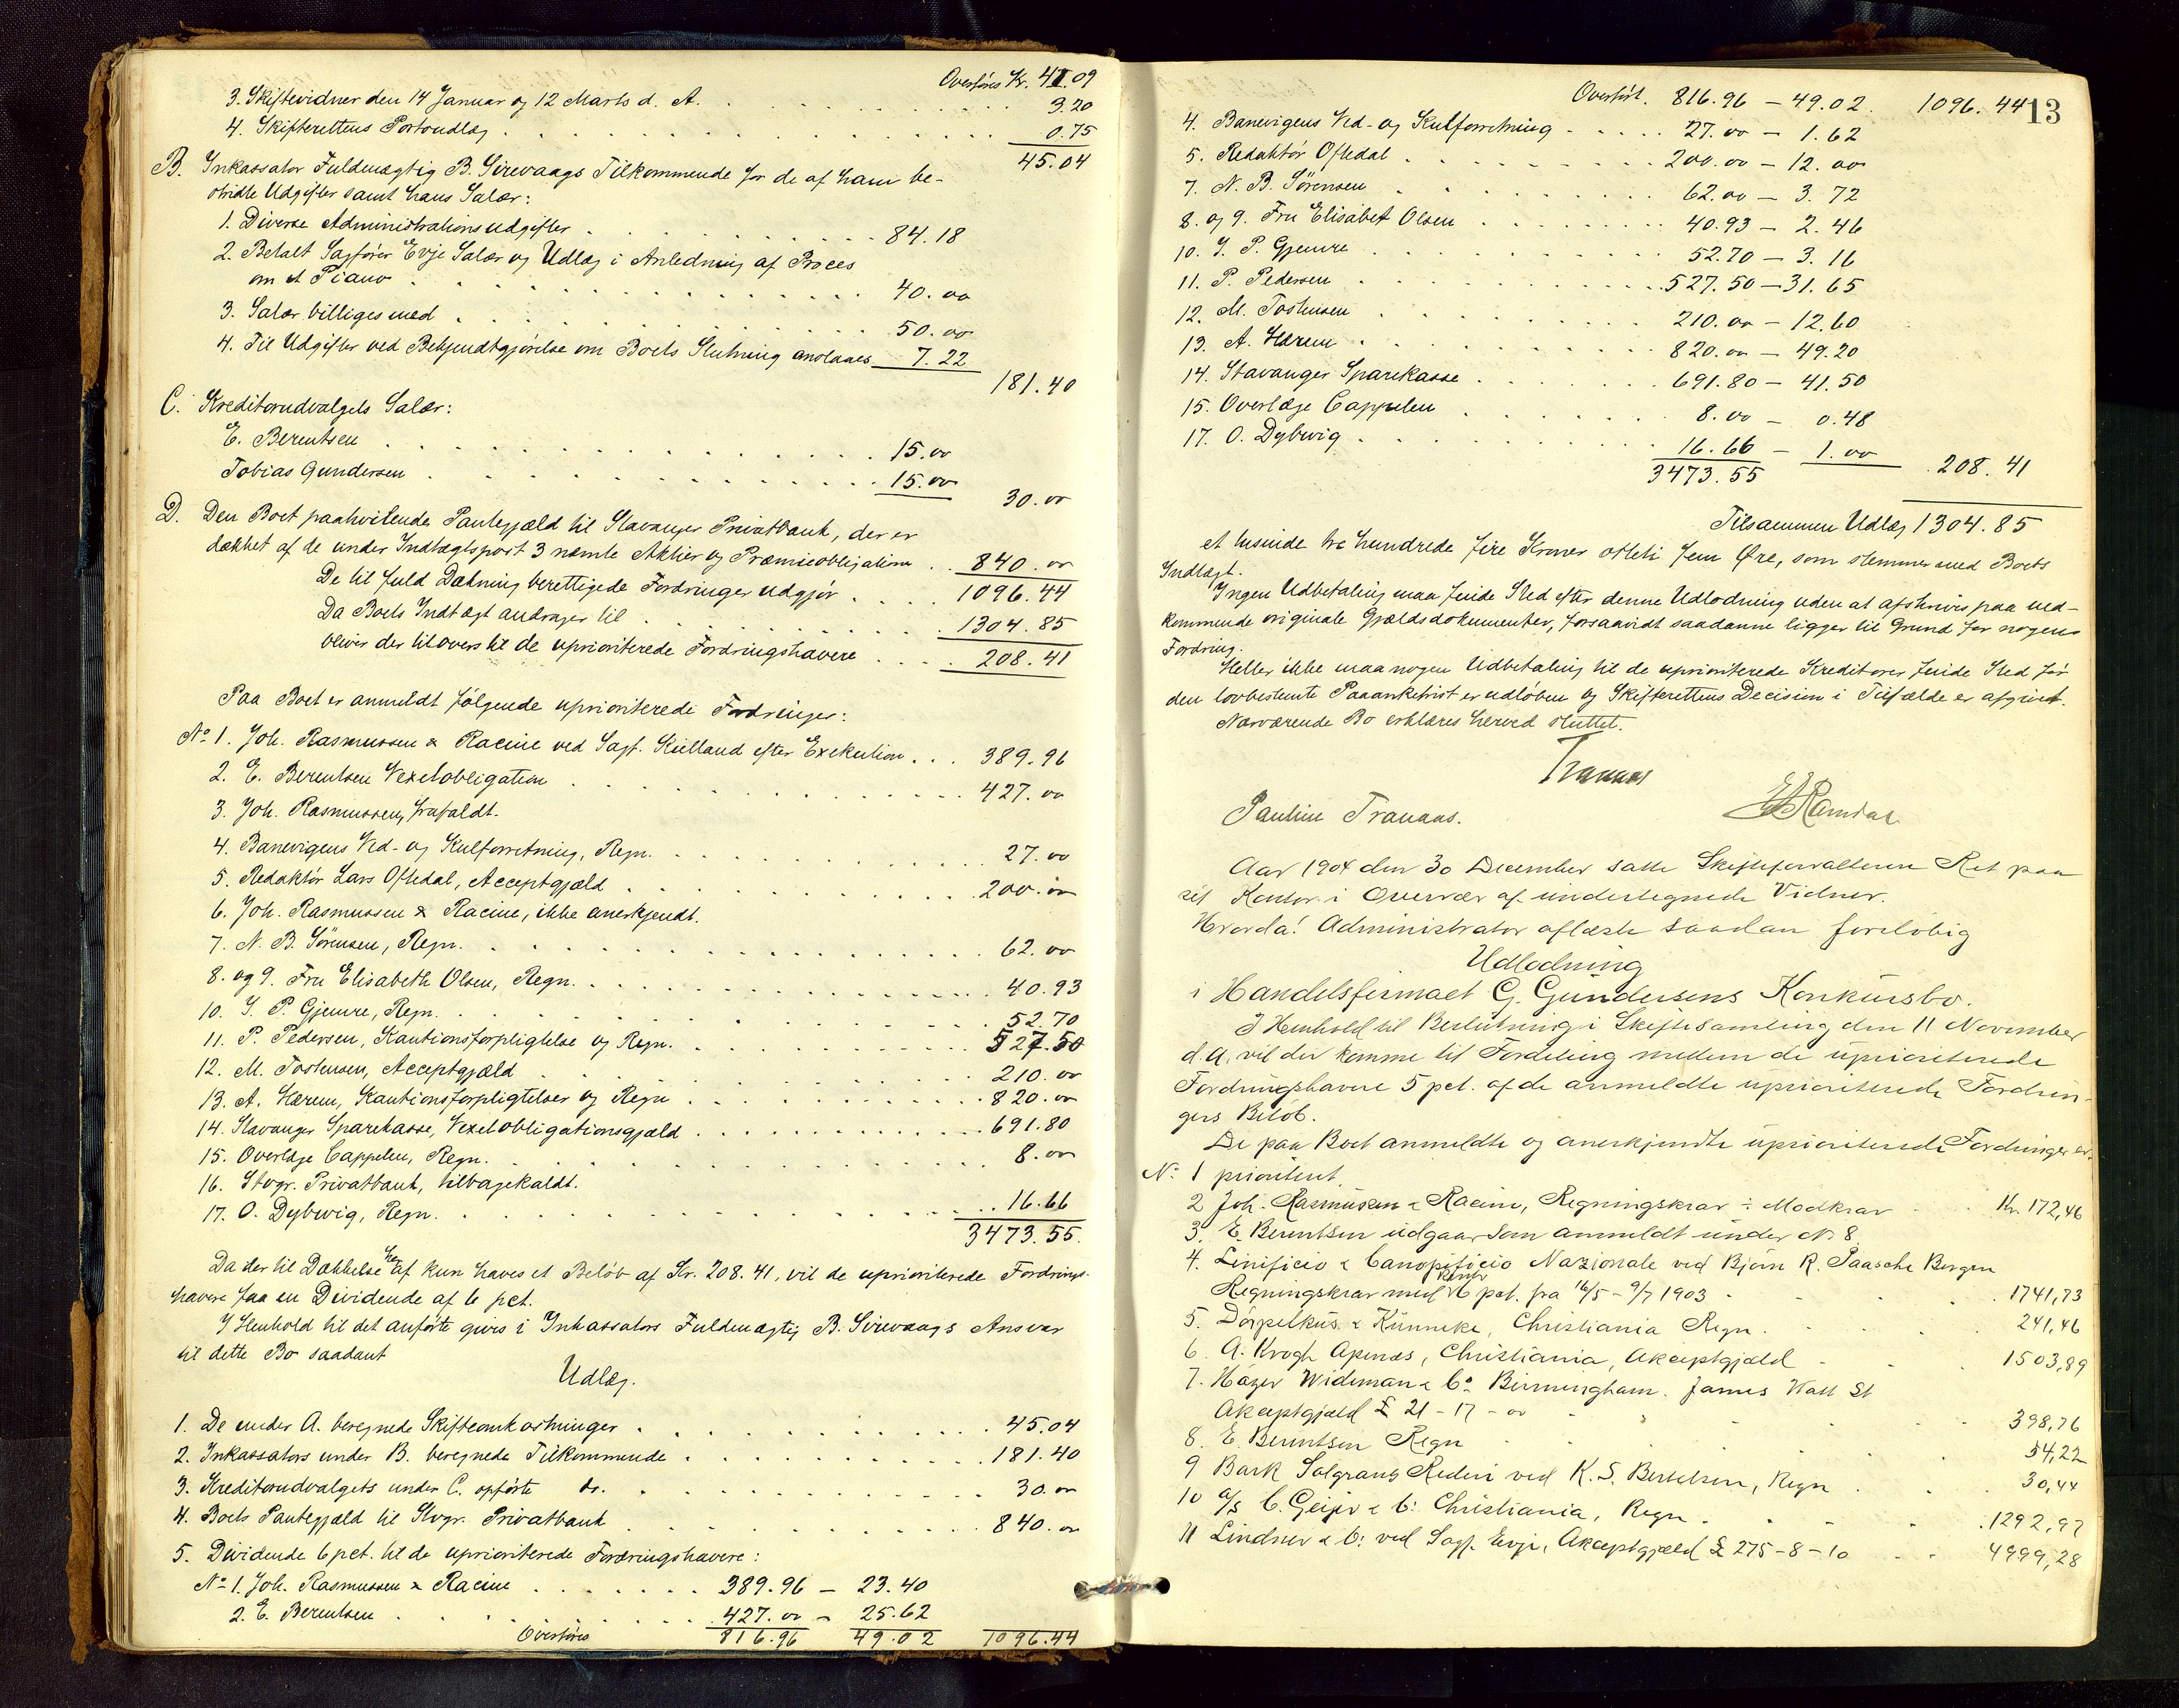 Overføres Kr. 41.09
3. Skiftevidner den 14 Januar og 12 Marts d. A. 3.20
4. Skifterettens Portoudlæg 0.75
45.04
B. Inkassator Fuldmægtig B. Sirevaags Tilkommende for de af ham be-
stridte Udgifter samt hans Salær:
1. Diverse Administrationsudgifter 84.18
2. Betalt Sagfører Evje Salær og Udlæg i Anledning af Proces
om et Piano 40.00
3. Salær billiges med 50.00
4. Til Udgifter ved Bekjendtgjørelse om Boets Slutning anslaaes 7.22
181.40
C. Kreditorudvalgets Salær:
E. Berentsen 15.00
Tobias Gundersen 15.00
30.00
D. Den Boet paahvilende Pantegjæld til Stavanger Privatbank, der er
dækket af de under Indtægtspost 3 nævnte Aktier og Præmieobligation 840.00
De til fuld Dækning berettigede Fordringer udgjør 1096.44
Da Boets Indtægt andrager til 1304.85
bliver der tilovers til de uprioriterede Fordringshavere 208.41
Paa Boet er anmeldt følgende uprioriterede Fordringer:
No 1. Joh. Rasmussen & Racine ved Sagf. Kielland efter Exekution 389.96
2. E. Berentsen Vexelobligation 427.00
3. Joh. Rasmussen, frafaldt.
4. Banevigens Ved- og Kulforretning, Regn. 27.00
5. Redaktør Lars Oftedal, Acceptgjæld 200.00
6. Joh. Rasmussen & Racine, ikke anerkjendt.
7. N. B. Sørensen, Regn. 62.00
8. og 9. Fru Elisabeth Olsen, Regn. 40.93
10. J. P. Gjemre, Regn. 52.70
11. P. Pedersen, Kautionsforpligtelse og Regn. 527.50
12. M. Tostensen, Acceptgjæld 210.00
13. A. Hærem, Kautionsforpligtelser og Regn 820.00
14. Stavanger Sparekasse, Vexelobligationsgjæld 691.80
15. Overlæge Cappelen, Regn. 8.00
16. Stvgr. Privatbank, tilbagekaldt.
17. O. Dybwig, Regn. 16.66
3473.55.
Da der til Dækkelse heraf kun haves et Beløb af Kr. 208.41, vil de uprioriterede Fordrings-
havere faa en Dividende af 6 pct.
I Henhold til det anførte gives i Inkassators Fuldmægtig B. Sirevaags Ansvar
til dette Bo saadant
Udlæg.
1. De under A. beregnede Skifteomkostninger 45.04
2. Inkassators under B. beregnede Tilkommende 181.40
3. Kreditorudvalgets under C. opførte do. 30.00
4. Boets Pantegjæld til Stvgr. Privatbank 840.00
5. Dividende 6 pct. til de uprioriterede Fordringshavere:
No 1. Joh. Rasmussen & Racine 389.96 – 23.40
2. E. Berentsen 427.00 – 25.62
Overføres 816.96 49.02 1096.44
13
Overført. 816.96 – 49.02. 1096.44
4. Banevigens Ved- og Kulforretning 27.00 – 1.62
5. Redaktør Oftedal 200.00 – 12.00
7. N. B. Sørensen 62.00 – 3.72
8. og 9. Fru Elisabet Olsen 40.93 – 2.46
10. J. P. Gjemre 52.70 – 3.16
11. P. Pedersen 527.50 – 31.65
12. M. Tostensen 210.00 – 12.60
13. A. Hærem 820.00 – 49.20
14. Stavanger Sparekasse 691.80 – 41.50
15. Overlæge Cappelen 8.00 – 0.48
17. O. Dybwig 16.66 – 1.00
3473.55 208.41
Tilsammen Udlæg 1304.85
et tusinde tre hundrede fire Kroner otteti fem Øre, som stemmer med Boets
Indtægt.
Ingen Udbetaling maa finde Sted efter denne Udlodning uden at afskrives paa ved-
kommende originale Gjældsdokumenter, forsaavidt saadanne ligger til Grund for nogen
Fordring.
Heller ikke maa nogen Udbetaling til de uprioriterede Kreditorer finde Sted før
den lovbestemte Paaankefrist er udløben og Skifterettens Decision i Tilfælde er afgivet.
Nærværende Bo erklæres herved sluttet.
Tranaas
Pauline Tranaas.
Aar 1904 den 30 December satte Skifteforvalteren Ret paa
sit Kontor i Overvær af undertegnede Vidner.
Hvorda! Administrator oflæste saadan foreløbig
Udlodning
i Handelsfirmaet G. Gundersens Konkursbo.
I Henhold til Beslutning i Skiftesamling den 11 November
d.A. vil der komme til Fordeling mellem de uprioriterede
Fordringshavere 5 pct. af de anmeldte uprioriterede Fordrin-
gers Beløb.
De paa Boet anmeldte og anerkjendte uprioriterede Fordringer er:
No 1 prioritert.
2 Joh. Rasmussen & Racine, Regningskrav ÷ Modkrav Kr. 172,46
3. E. Berentsen udgaar som anmeldt under No 8
4. Linificio & Canopificio Nazionale ved Bjørn R. Paasche Bergen
Regningskrav med Renter 6 pct. fra 16/5 – 9/7 1903 1741,73
5. Dörpelkus & Künneke, Christiania Regn. 241,46
6. A. Krogh Apenæs, Christiania, Akceptgjæld 1503,89
7. Häger Wideman & Co Birmingham. James Watt St
Akceptgjæld £ 21 – 17 – 00 398,76
8. E. Berentsen Regn 54,22
9 Bark Solgrans Rederi ved K. S. Bertelsen, Regn 30,44
10 A/S C. Geijer & Co: Christiania, Regn. 1292,97
11 Lindner & Co: ved Sagf. Evje, Akceptgjæld £ 275 – 8 – 10 4999,28